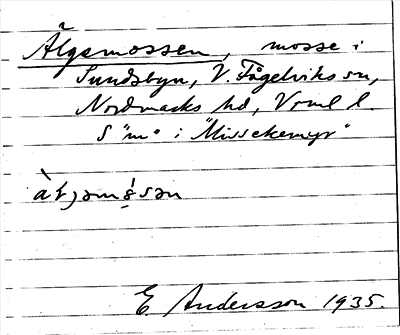 Älgemossen, mosse i
Sundsbyn, V. Fågelviks sn,
Nordmarks hd, Vrml l.
S "m" i "Missekemyr"
E Andersson 1935.